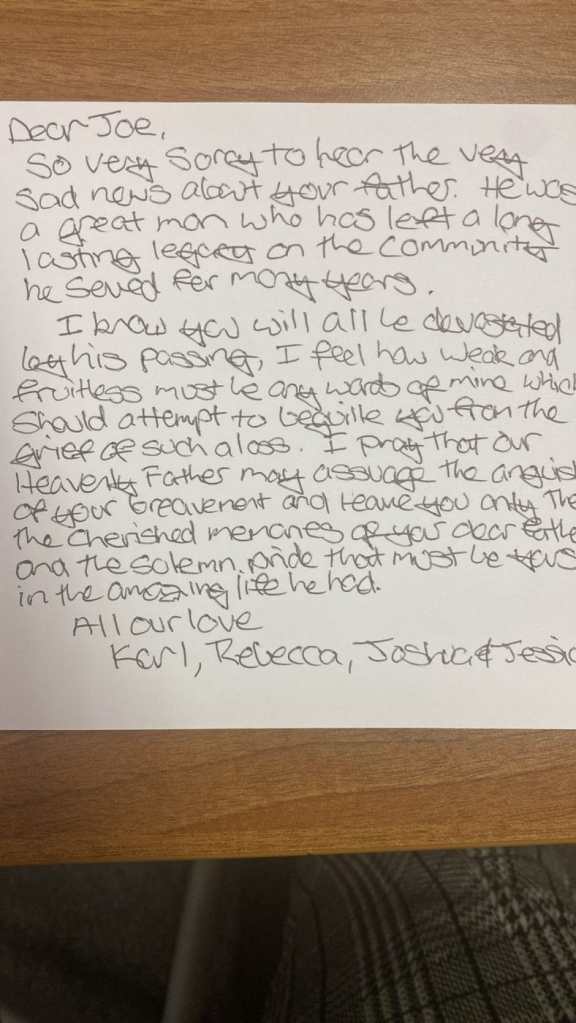 Dear Joe,
So very sorry to hear the very
sad news about your father. He was
a great man who has left a long
lasting legacy on the community
he served for many years.
I know you will all be devastated
by his passing, I feel how weak and
fruitless must be any words of mine which
should attempt to beguile you from the
grief of such a loss. I pray that our
Heavenly Father may assuage the anguish
of your breavement and leave you only the
the cherished memories of your dear father
and the solemn pride that must be yours
in the amazing life he had.
All our love
Karl, Rebecca, Joshua & Jessica